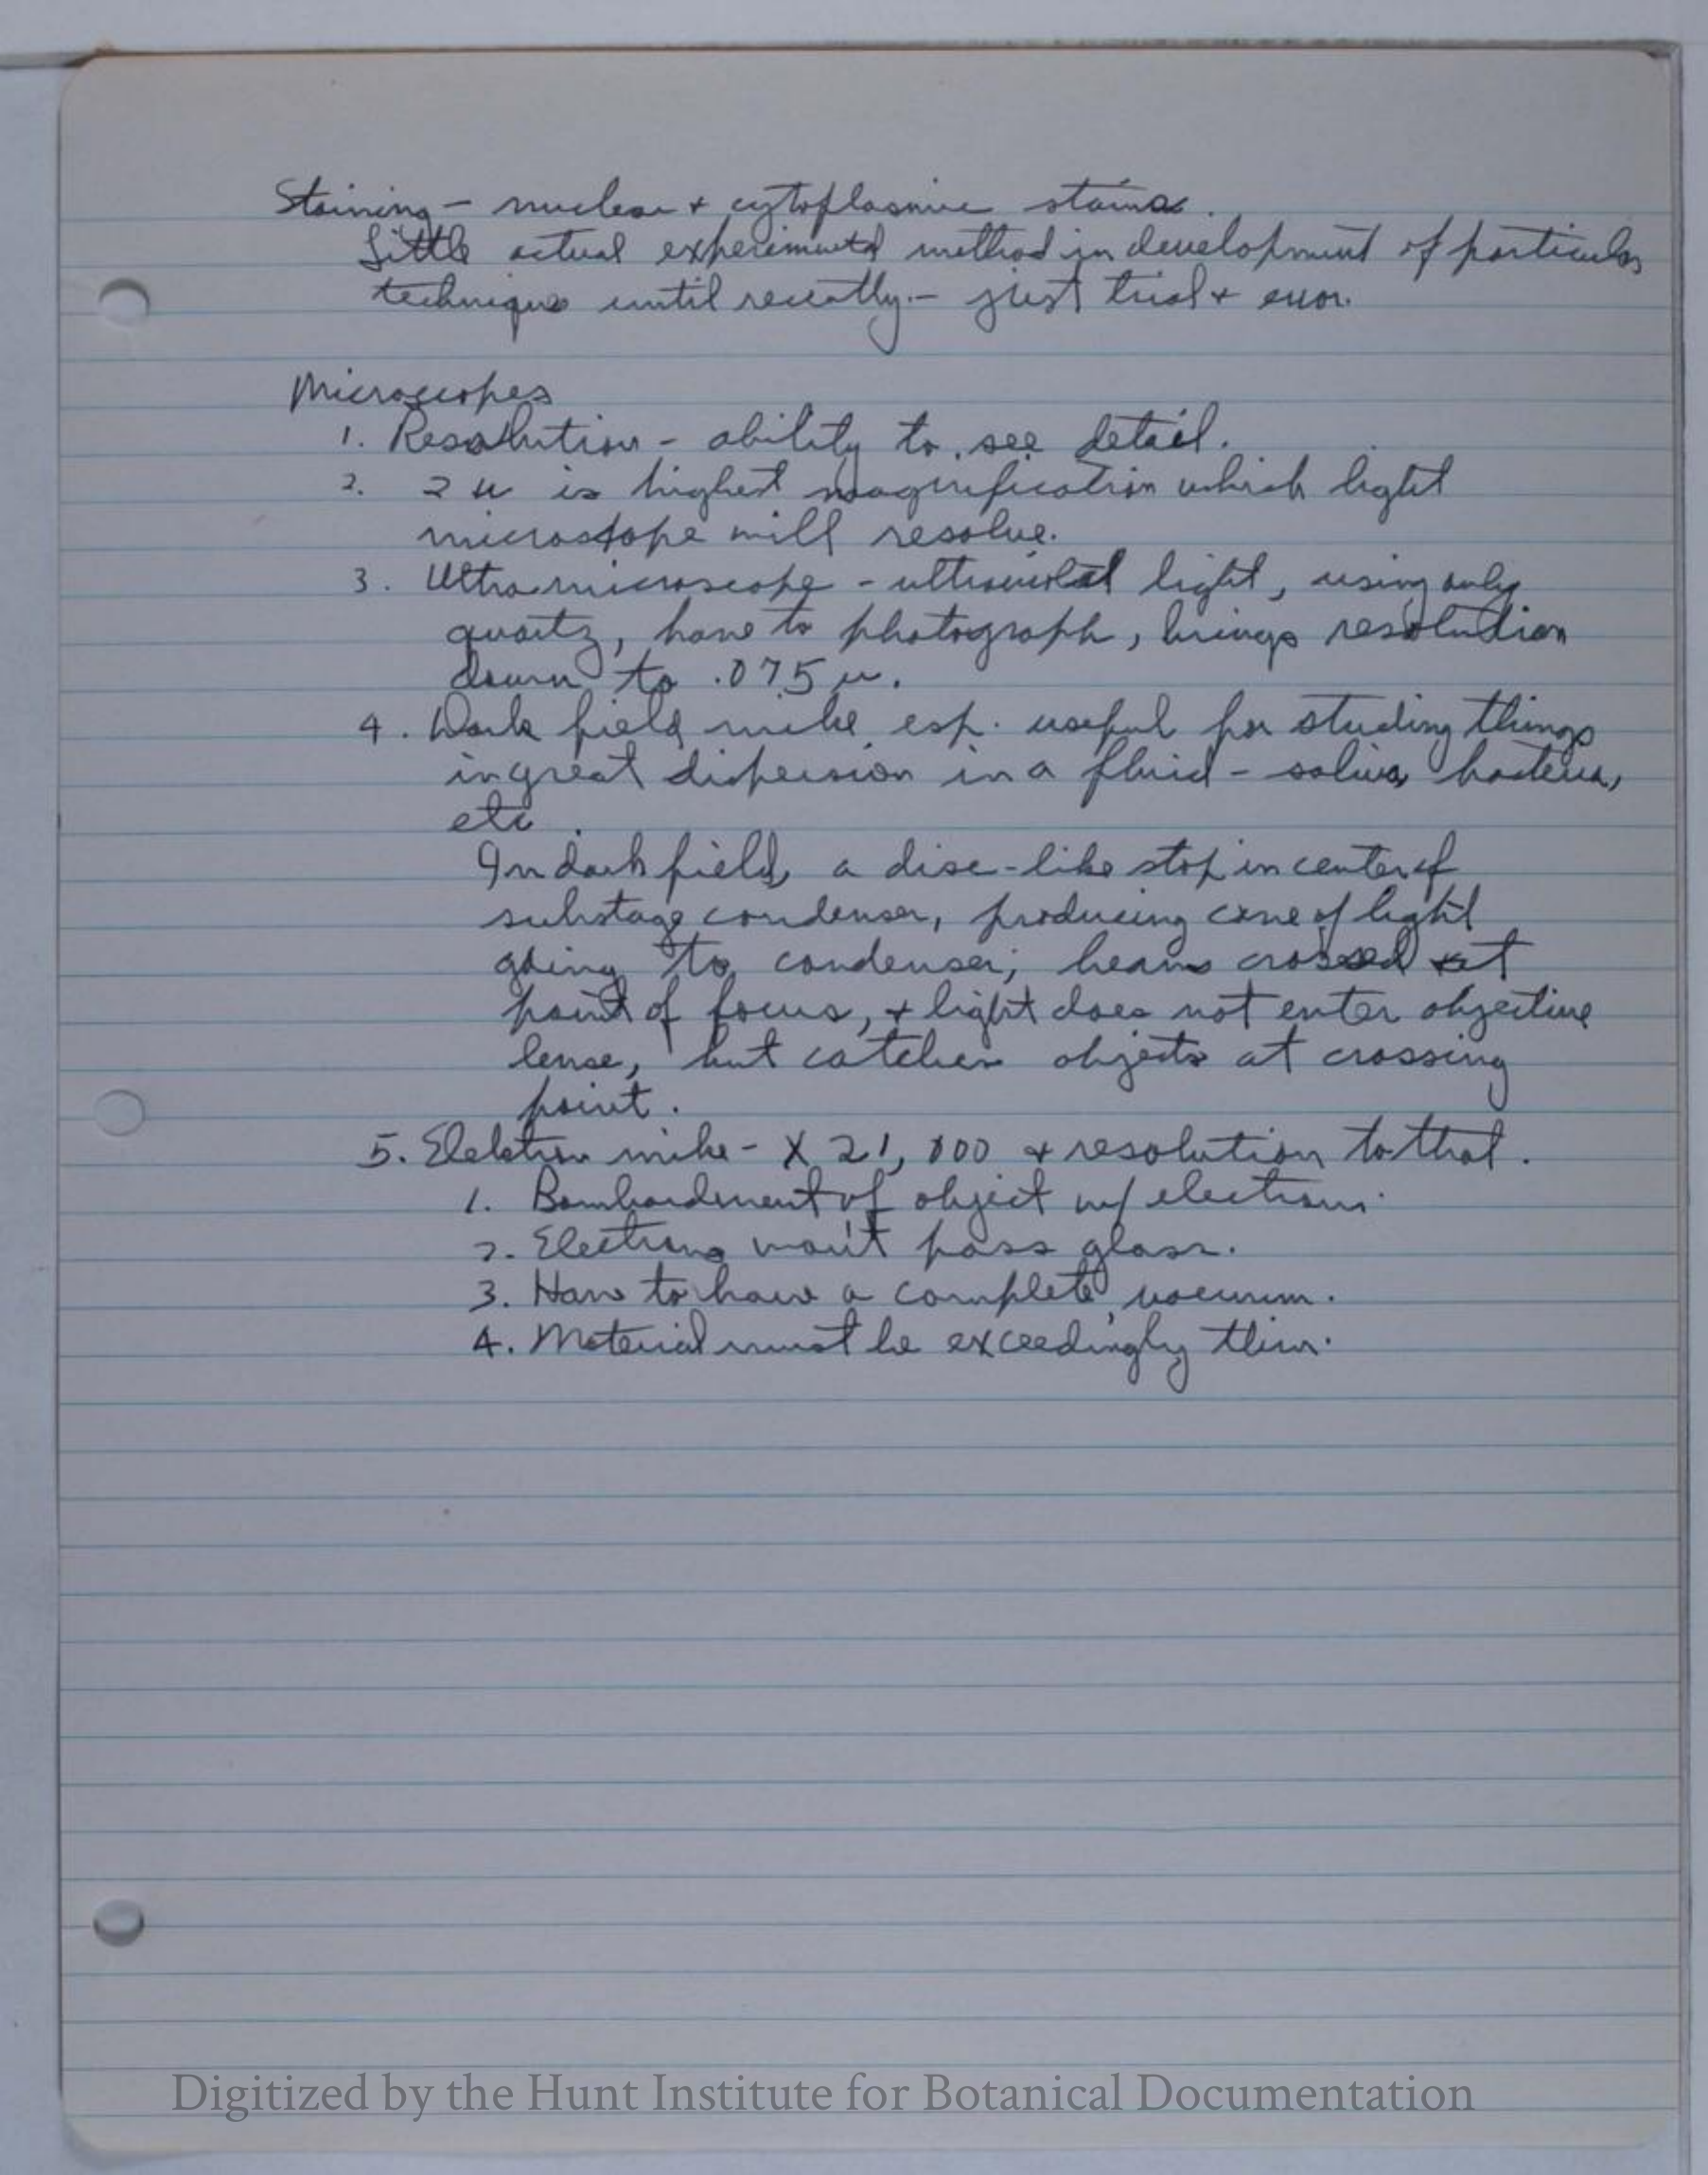 Staining - nuclear + cytoplasmic stains.
Little actual experimental method in development of particular
technique until recently. - just trial + error.
Microscopes
1. Resolution - ability to see detail.
2. 2 u is highest magnification which light
microscope will resolve.
3. Ultramicroscope - ultraviolet light, using only
quartz, have to photograph, brings resolution
down to .075 u.
4. Dark field mike esp. useful for studing things
in great dispersion in a fluid - saliva, bacteria,
etc.
In dark field, a disc-like stop in center of
substage condenser, producing cone of light
going to condenser; beams crossed at
point of focus, + light does not enter objective
lense, but catches objects at crossing
point.
5. Elektron mike - X 21,000 + resolution to that.
1. Bombardment of object w/ electrons.
2. Electrons won't pass glass.
3. Have to have a complete vacuum.
4. Material must be exceedingly thin.
Digitized by the Hunt Institute for Botanical Documentation